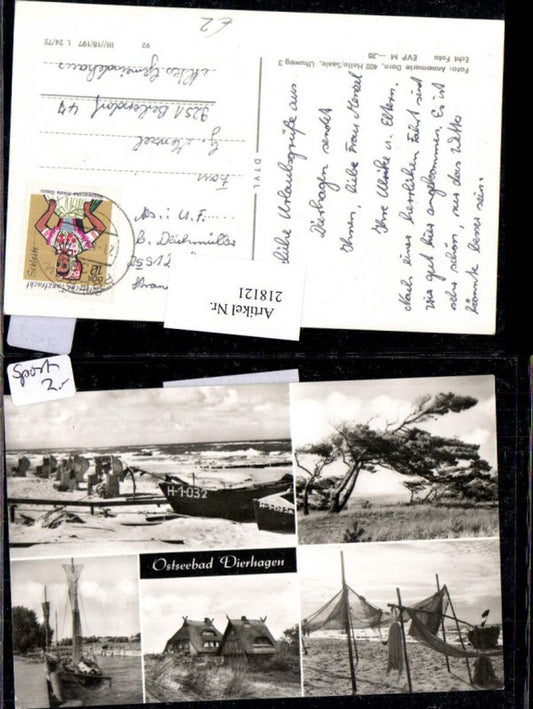 Foto: Annemarie Dorn, 402 Halle/Saale, Uhuweg 3
Echt Foto EVP M —.20
92 III/18/197 L 24/72
DTVL
liebe Urlaubsgrüße aus
Dierhagen sendet
Ihnen, liebe Frau Menzel
Ihre Ulrike u. Eltern.
Nach einer herrlichen Fahrt sind
wir gut hier angekommen. Es ist
sehr schön, nur das Wetter
könnte besser sein.
Frau
G. Menzel
9251 Berbersdorf 47
Abs.: U. F.
Artikel Nr.
218121
Spott
2.-
H-1-032
Ostseebad Dierhagen